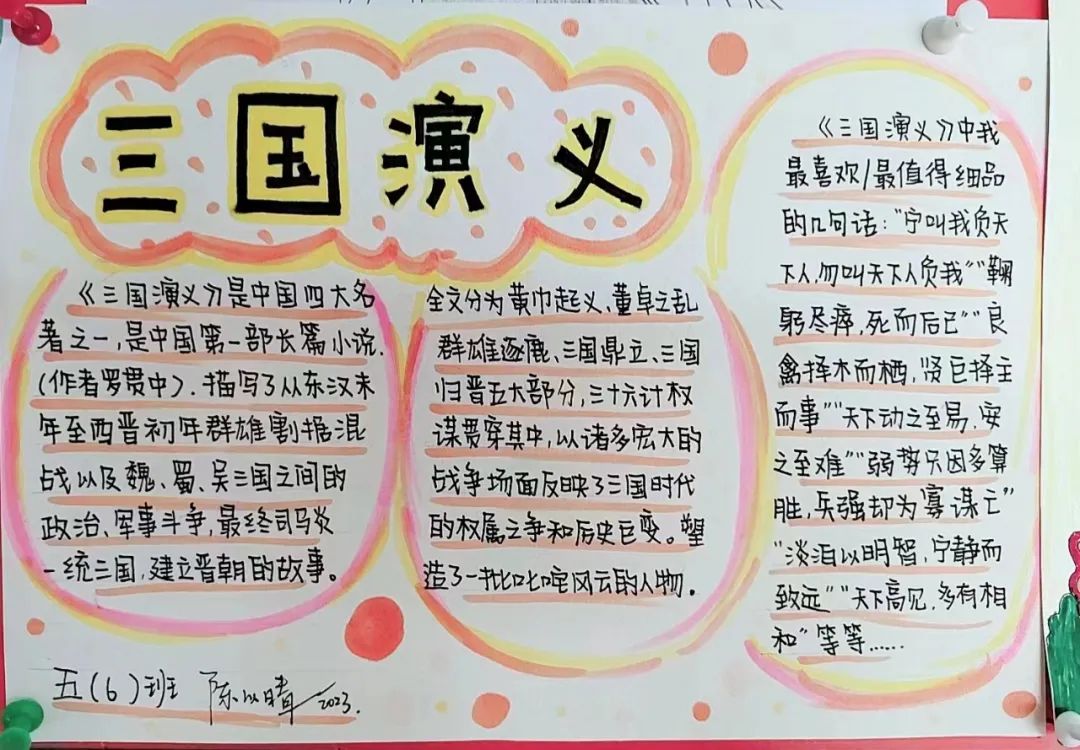 三国演义
《三国演义》是中国四大名
著之一,是中国第一部长篇小说.
(作者罗贯中).描写了从东汉末
年至西晋初年群雄割据混
战以及魏、蜀、吴三国之间的
政治、军事斗争,最终司马炎
一统三国,建立晋朝的故事。
全文分为黄巾起义、董卓之乱
群雄逐鹿、三国鼎立、三国
归晋五大部分,三十六计权
谋贯穿其中,以诸多宏大的
战争场面反映了三国时代
的权属之争和历史巨变。塑
造了一批叱咤风云的人物。
《三国演义》中我
最喜欢/最值得细品
的几句话:"宁叫我负天
下人,勿叫天下人负我""鞠
躬尽瘁,死而后已""良
禽择木而栖,贤臣择主
而事""天下动之至易,安
之至难""弱势只因多算
胜,兵强却为寡谋亡"
"淡泊以明智,宁静而
致远""天下高见,多有相
和"等等……
五(6)班 陈以晴 2023.